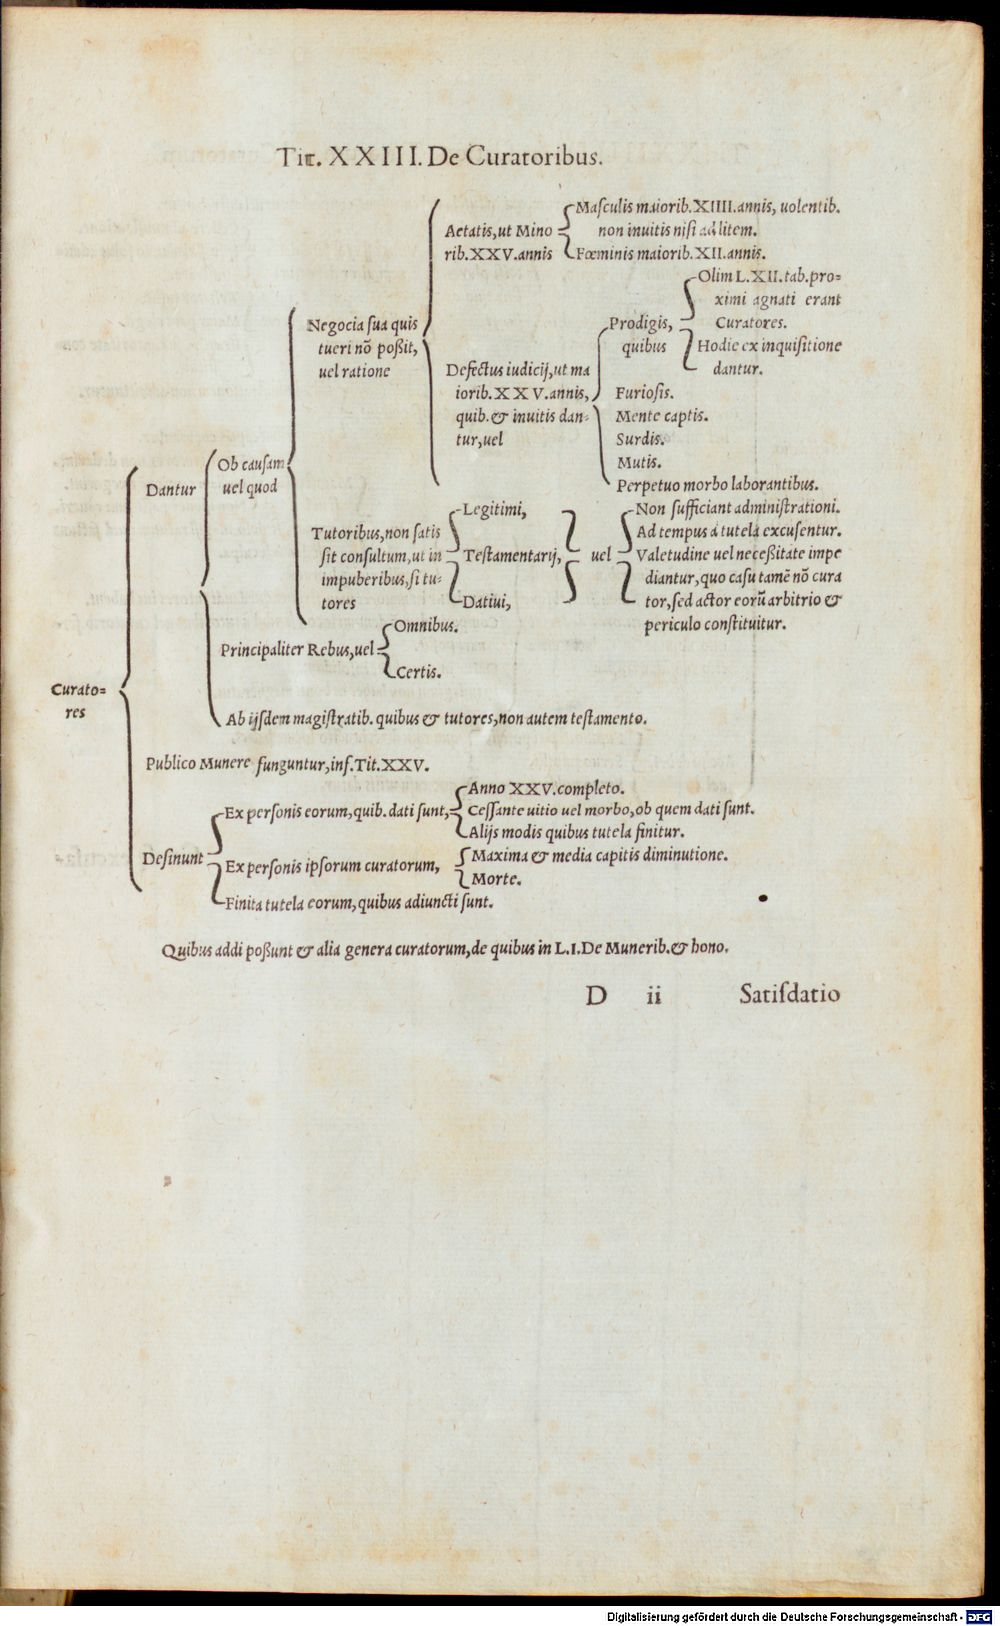 Tit. XXIII. De Curatoribus.
Maſculis maiorib. XIIII. annis, uolentib.
Aetatis, ut Mino
non inuitis niſi ad litem.
rib. XXV. annis
Fœminis maiorib. XII. annis.
Olim L. XII. tab. pro=
ximi agnati erant
Negocia ſua quis
Prodigis,
Curatores.
tueri nõ poßit,
quibus
Hodie ex inquiſitione
uel ratione
Defectus iudicij, ut ma
dantur.
iorib. XXV. annis,
Furioſis.
quib. & inuitis dan=
Mente captis.
tur, uel
Surdis.
Ob cauſam
Mutis.
Dantur
uel quod
Perpetuo morbo laborantibus.
Legitimi,
Non ſufficiant adminiſtrationi.
Tutoribus, non ſatis
Ad tempus à tutela excuſentur.
ſit conſultum, ut in
Teſtamentarij,
uel
Valetudine uel neceßitate impe
impuberibus, ſi tu=
diantur, quo caſu tamẽ nõ cura
tores
Datiui,
tor, ſed actor eorũ arbitrio &
Omnibus.
periculo conſtituitur.
Principaliter Rebus, uel
Certis.
Curato=
res
Ab ijſdem magiſtratib. quibus & tutores, non autem teſtamento.
Publico Munere funguntur, inf. Tit. XXV.
Anno XXV. completo.
Ex perſonis eorum, quib. dati ſunt,
Ceſſante uitio uel morbo, ob quem dati ſunt.
Alijs modis quibus tutela finitur.
Deſinunt
Maxima & media capitis diminutione.
Ex perſonis ipſorum curatorum,
Morte.
Finita tutela eorum, quibus adiuncti ſunt.
Quibus addi poßunt & alia genera curatorum, de quibus in L. I. De Munerib. & hono.
D ii Satiſdatio
Digitalisierung gefördert durch die Deutsche Forschungsgemeinschaft - DFG